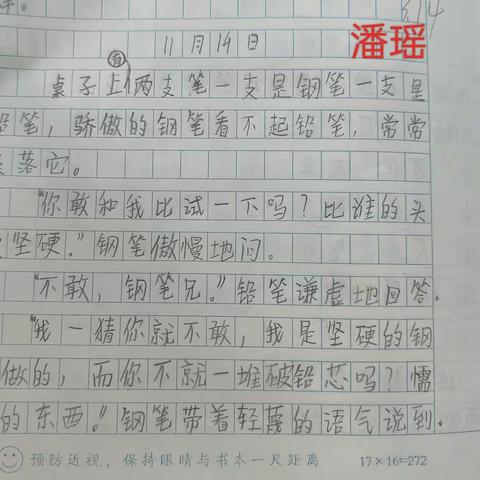 11月14日
潘瑶
有
桌子上俩支笔一支是钢笔一支是
笔，骄傲的钢笔看不起铅笔，常常
落它。
"你敢和我比试一下吗？比谁的头
坚硬。"钢笔傲慢地问。
"不敢，钢笔兄。"铅笔谦虚地回答。
"我一猜你就不敢，我是坚硬的钢
做的，而你不就一堆破铅芯吗？懦
的东西。"钢笔带着轻蔑的语气说到。
预防近视，保持眼睛与书本一尺距离 17×16=272